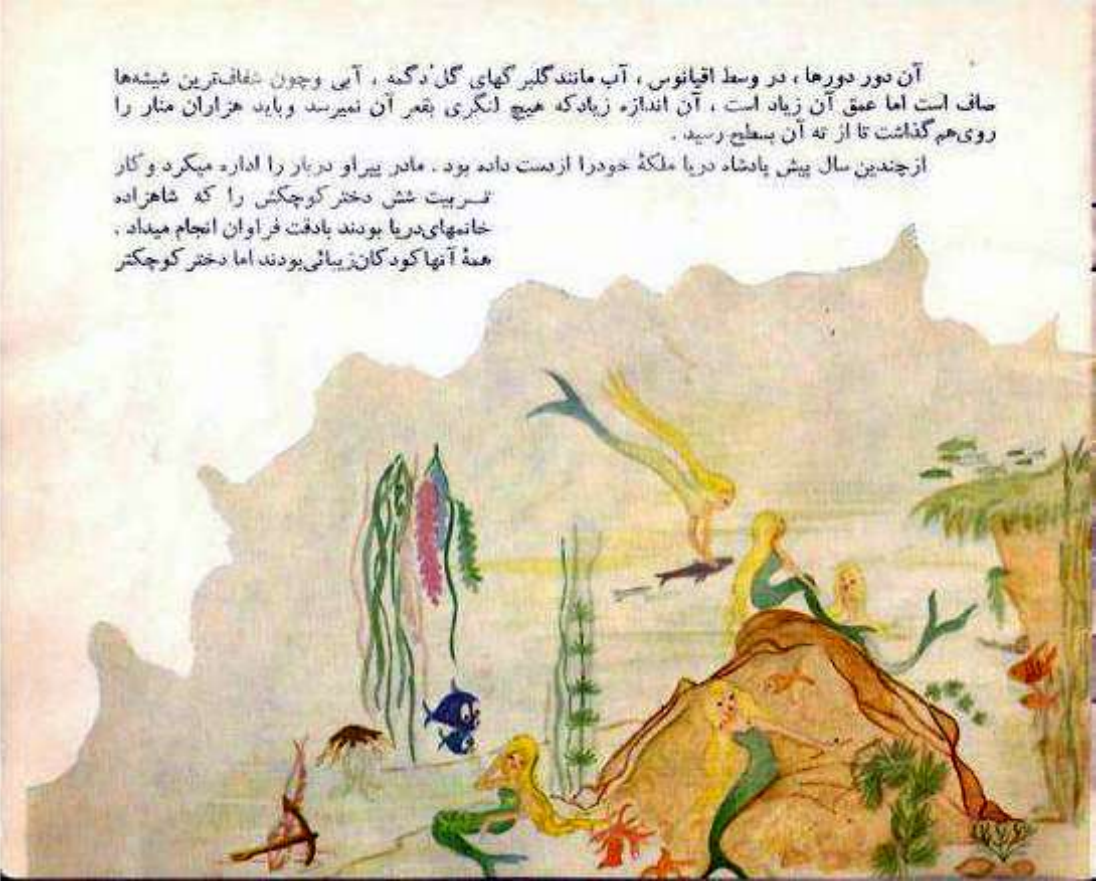 آن دور دورها ، در وسط اقیانوس ، آب مانند گلبر گهای گل دگمه ، آبی وچون شفاف‌ترین شیشه‌ها
صاف است اما عمق آن زیاد است ، آن اندازه زیادکه هیچ لنگری بقعر آن نمیرسد وباید هزاران منار را
روی‌هم گذاشت تا از ته آن بسطح رسید .
ازچندین سال پیش پادشاه دریا ملکهٔ خودرا ازدست داده بود . مادر پیراو دربار را اداره میکرد و کار
تربیت شش دختر کوچکش را که شاهزاده
خانمهای‌دریا بودند بادقت فراوان انجام میداد .
همهٔ آنها کودکان‌زیبائی‌بودند اما دختر کوچکتر